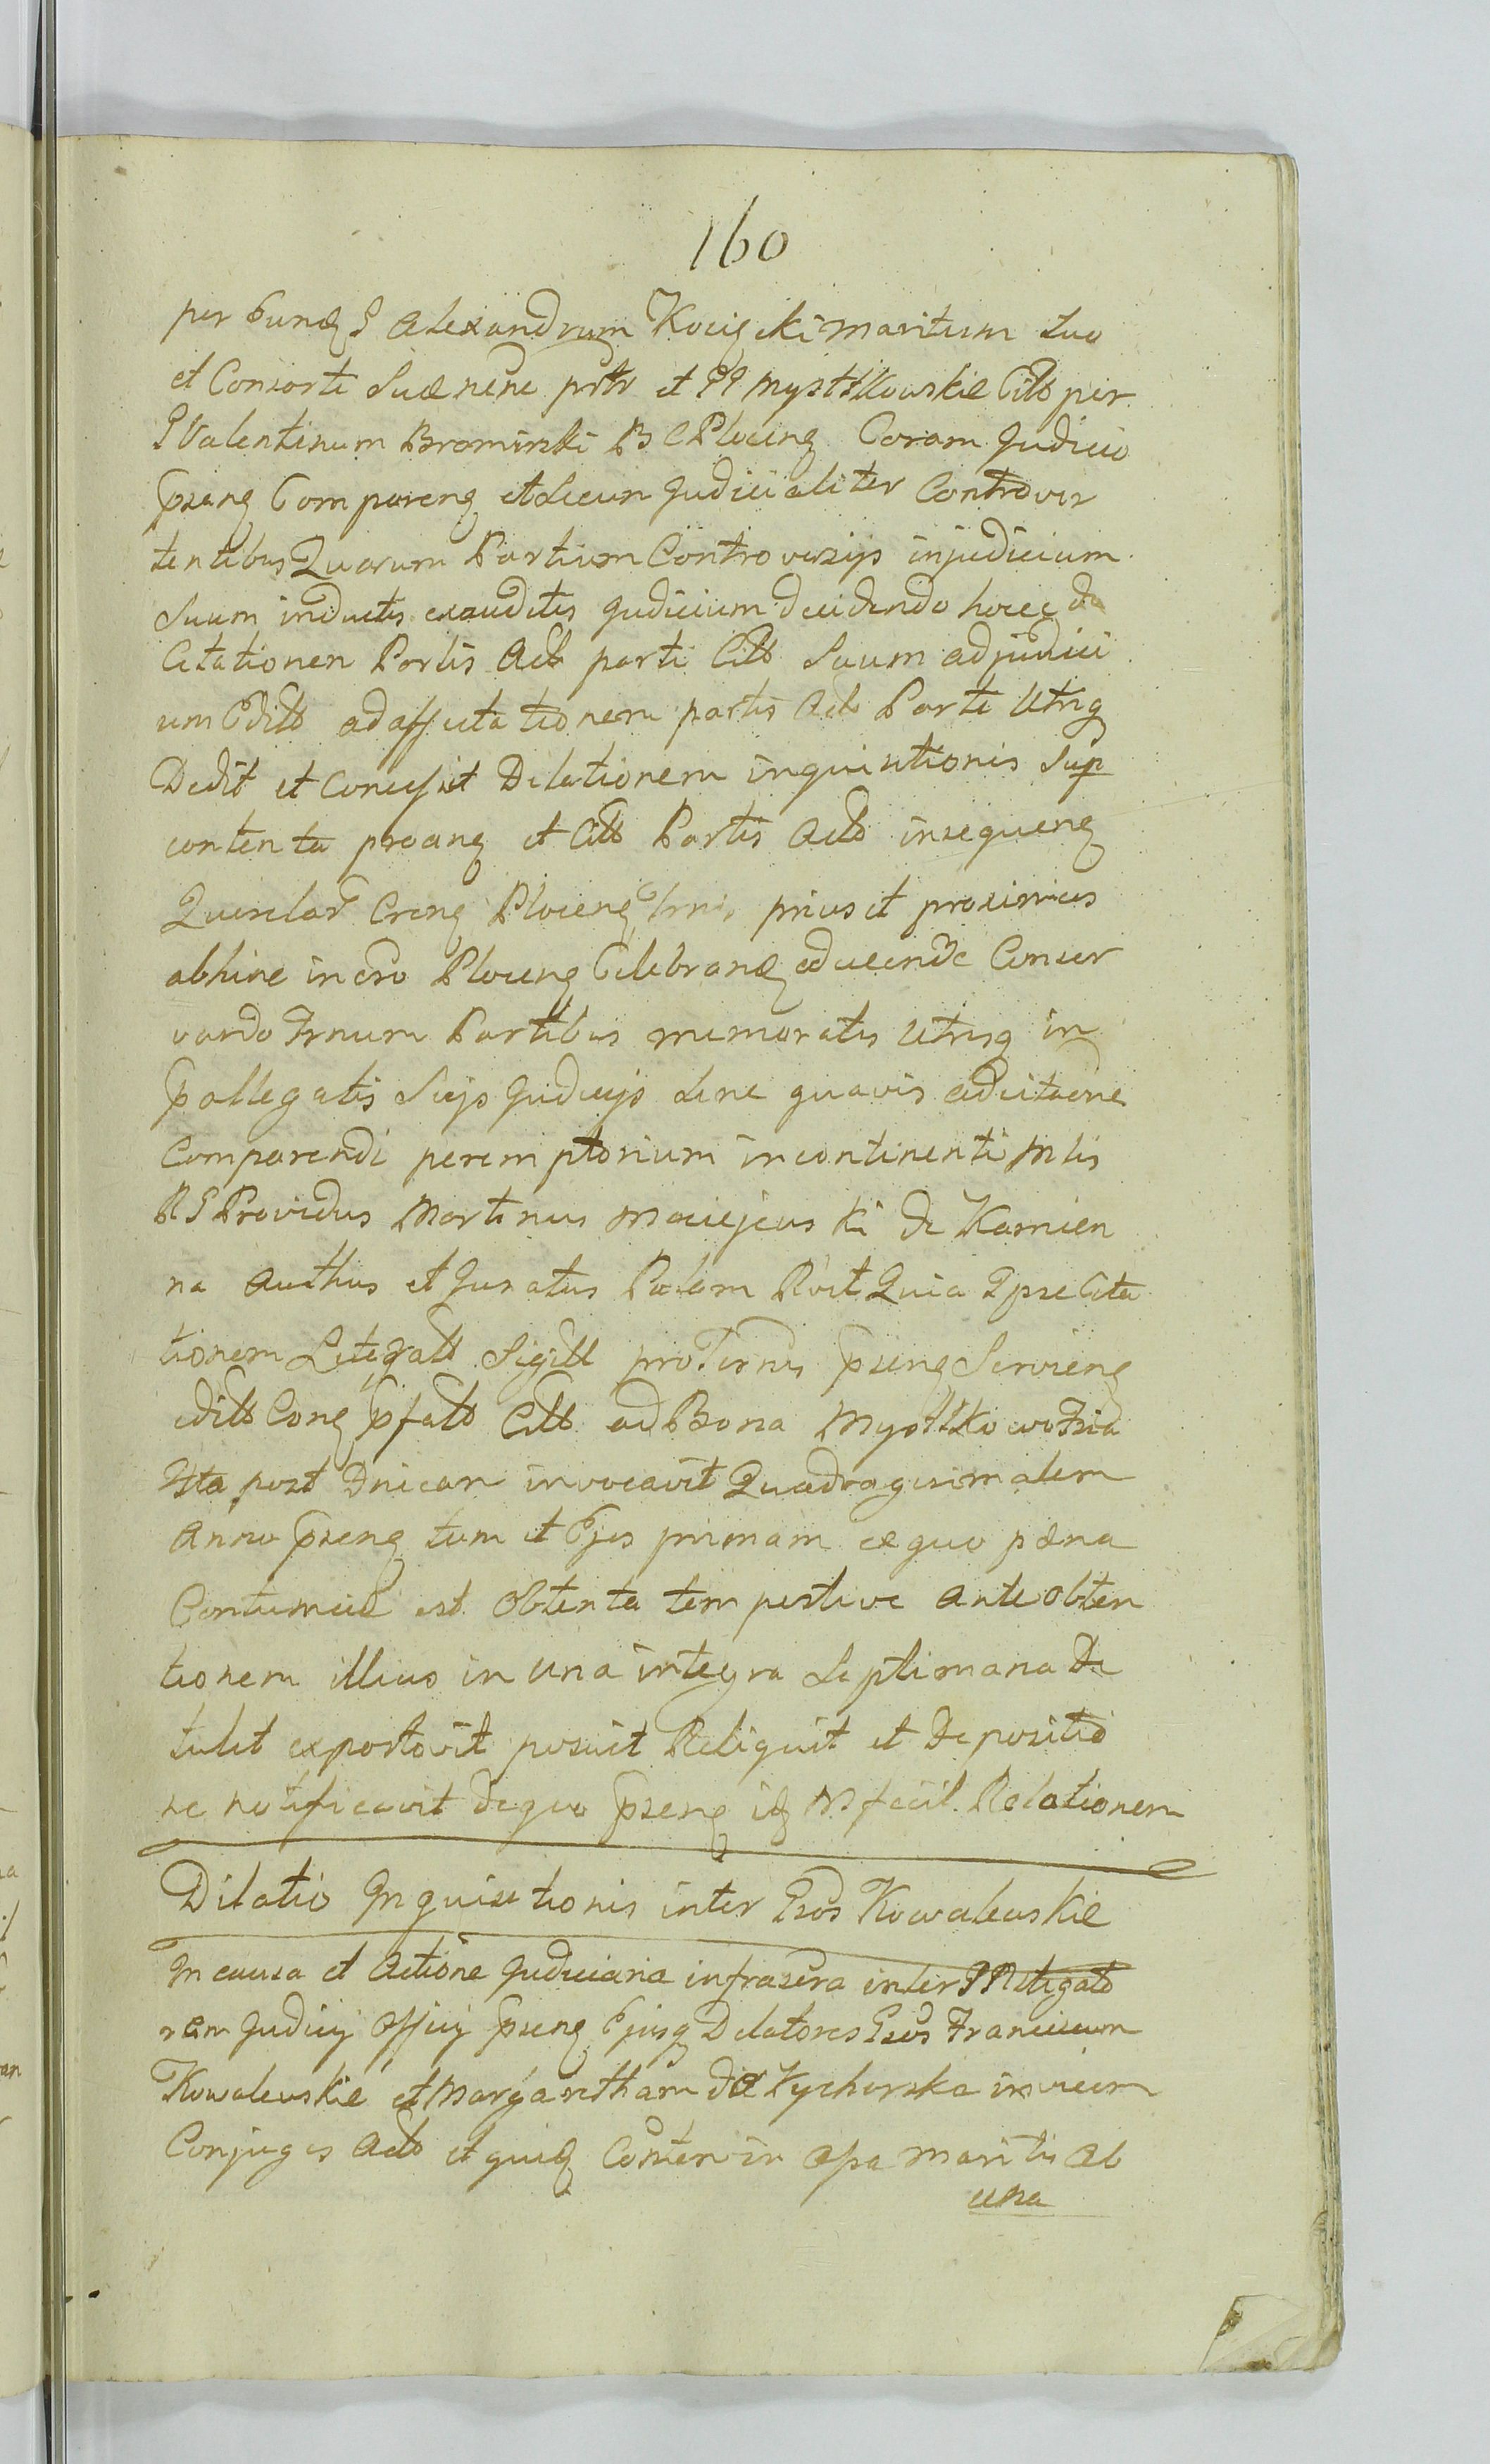 160
per Eund G Alexandrum Kocięcki maritum suo
et Consorte Suæ nene prtr et GG Mystkowskie Citt per
G Valentinum Bromirski B C Plocen Coram Judicio
pseng Compareng et secum Judicialiter Controver
tentibus Quarum Partium Controversijs in judicium
Suum inductis exauditis Judicium decidendo hocce
Citationen Partis Act parti Citt Suum ad judici
um Editt ad affectationem partis Act Parte Utrq
Dedit et Concessit Dilationem inquisitionis Sup
contenta proang et Citt Partis Act insequeng
Querelar Creng Ploceng Trnis prius et proximius
abhinc in Cro Ploceng Celebrand educende Conser
vando Trnum Partibus memoratis Utrisq in
pallegatis Suijs Judicijs sine quavis adcitaone
Comparendi peremptorium in continenti Mtis
R G Providus Martinus Maciejewski de Kamien
na Authus et Juratus Palam Rvit Quia Ipse Cita
tionem Litegatt Sigill pro Ternis pseng Servieng
editt Cong pfatt Citt ad Bona Mystkowo Fria
4ta post Dnicam invocavit Quadragesimalem
Anno pseng tum et Ejus primam ex quo pæna
Contumciæ est Obtenta tempestive Ante obten
tionem illius in una integra Septimana De
tulit exportavit posuit Reliquit et Depositio
ne notificavit de quo pseng id M fecit Relationem
Dilatio Inquisitionis inter Gsos Kowalewskie
In causa et Actione Judiciaria infrascra inter Instigato
rem Judicij Officij pseng Ejusq Delatores Gsos Franciscum
Kowalewskie et Margaritham de Rychorska invicem
Conjuges Act et quid Consten in Apa mariti ab
una